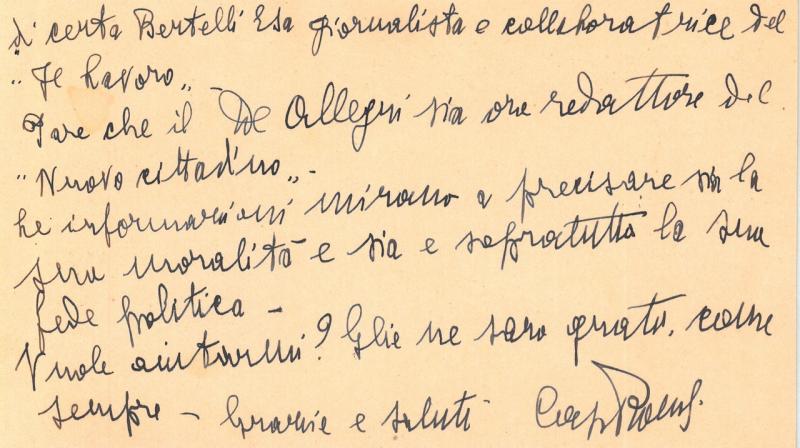 di certa Bertelli Esa giornalista e collaboratrice del
"Il Lavoro„ -
Pare che il De Allegri sia ora redattore del
"Nuovo cittadino„ -
Le informazioni mirano a precisare sia la
sua moralità e sia e sopratutto la sua
fede politica -
Vuole aiutarmi? Glie ne sarò grato, come
sempre - Grazie e saluti